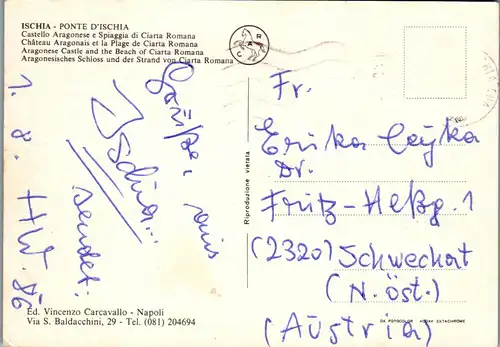 ISCHIA - PONTE D'ISCHIA
Castello Aragonese e Spiaggia di Ciarta Romana
Château Aragonais et la Plage de Ciarta Romana
Aragonese Castle and the Beach of Ciarta Romana
Aragonesisches Schloss und der Strand von Ciarta Romana
C A R
Grüße, aus
Ischia...
sendet:
HW. 86
1. 8.
Ed. Vincenzo Carcavallo - Napoli
Via S. Baldacchini, 29 - Tel. (081) 204694
Riproduzione vietata
Fr.
Erika Cejka
Dr.
Fritz-Heßg. 1
(2320) Schwechat
(N. öst.)
(Austria)
DA FOTOCOLOR KODAK EKTACHROME